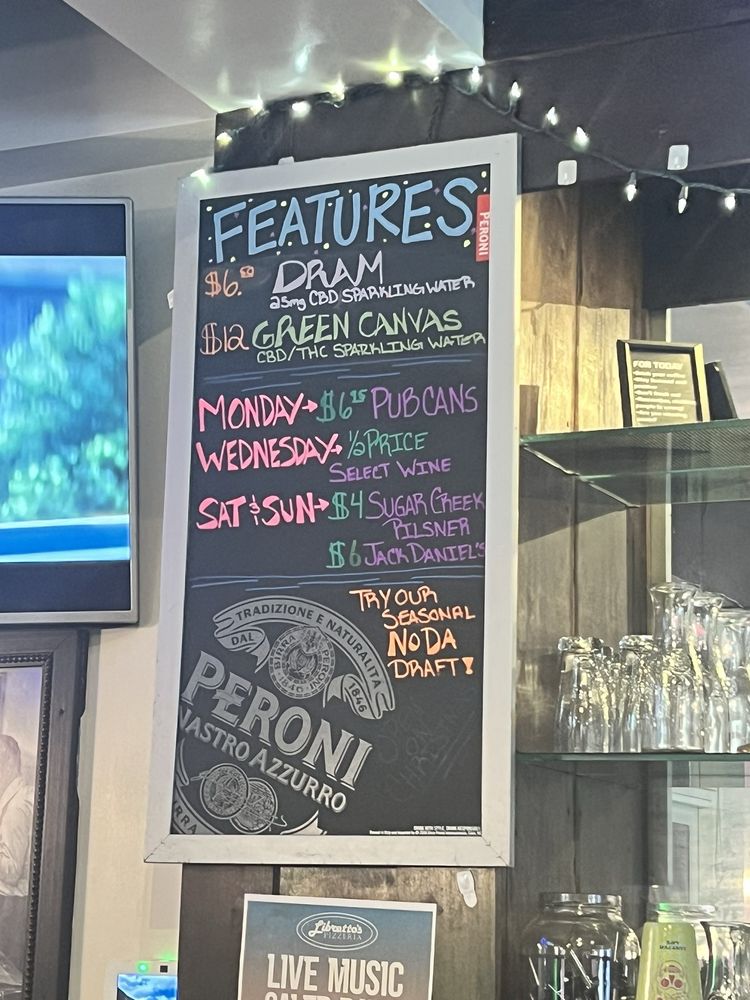 FEATURES
PERONI
$6.50 DRAM
25mg CBD SPARKLING WATER
$12 GREEN CANVAS
CBD/THC SPARKLING WATER
MONDAY→ $6.25 PUB CANS
WEDNESDAY→ 1/2 PRICE
SELECT WINE
SAT & SUN→ $4 SUGAR CREEK
PILSNER
$6 JACK DANIEL'S
TRY OUR
SEASONAL
NODA
DRAFT!
TRADIZIONE E NATURALITÀ
DAL 1846
BIRRA PERONI
1846
PERONI
NASTRO AZZURRO
FOR TODAY
Libretto's
PIZZERIA
LIVE MUSIC